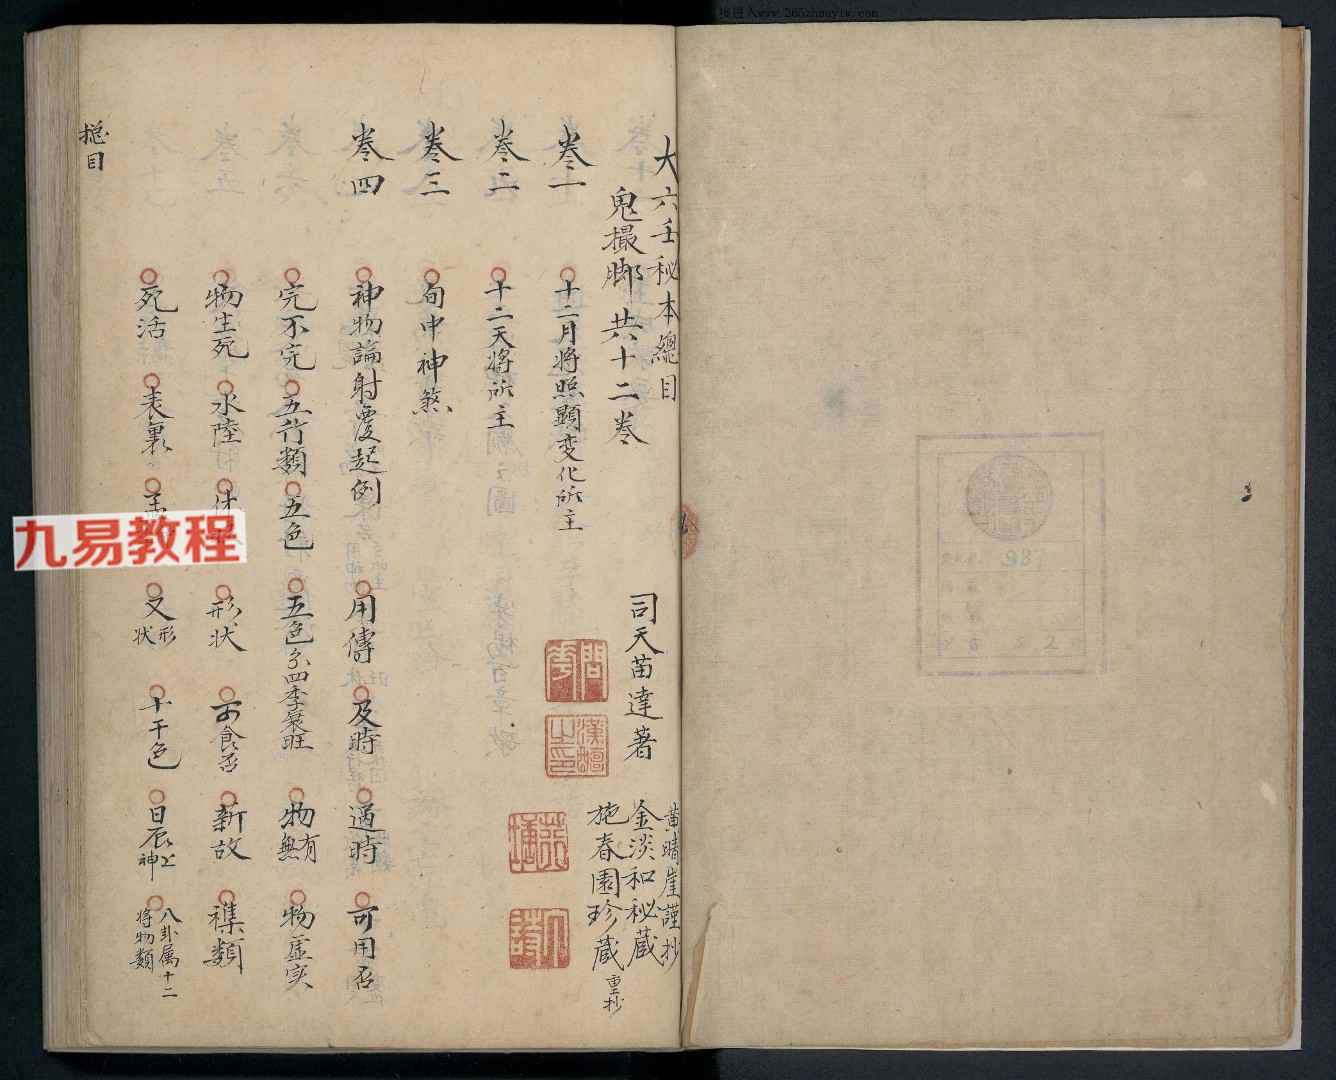 大六壬秘本總目
鬼撮脚共十二卷
司天苗達著
黄晴崖謹抄
金淡和秘蔵
施春園珍蔵
重抄
卷一
十二月将照顯变化所主
卷二
十二天将所主
卷三
旬中神煞
卷四
神物論射覆起例
用傳
及時
過時
可用否
完不完
五行類
五色
五色分四季衰旺
物有無
物虚实
物生死
水陸
形状
可食否
新故
襍類
死活
表裏
又形状
十干色
日辰上神
八卦属十二将物類
総目
九易教程
987
2
www.265zhouyiw.com